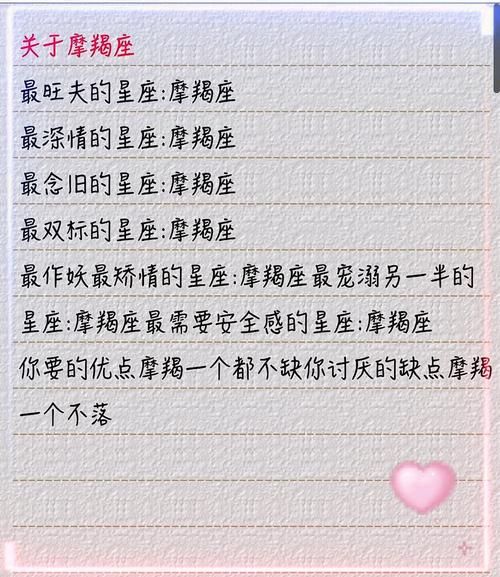 关于摩羯座
最旺夫的星座:摩羯座
最深情的星座:摩羯座
最念旧的星座:摩羯座
最双标的星座:摩羯座
最作妖最矫情的星座:摩羯座最宠溺另一半的
星座:摩羯座最需要安全感的星座:摩羯座
你要的优点摩羯一个都不缺你讨厌的缺点摩羯
一个不落